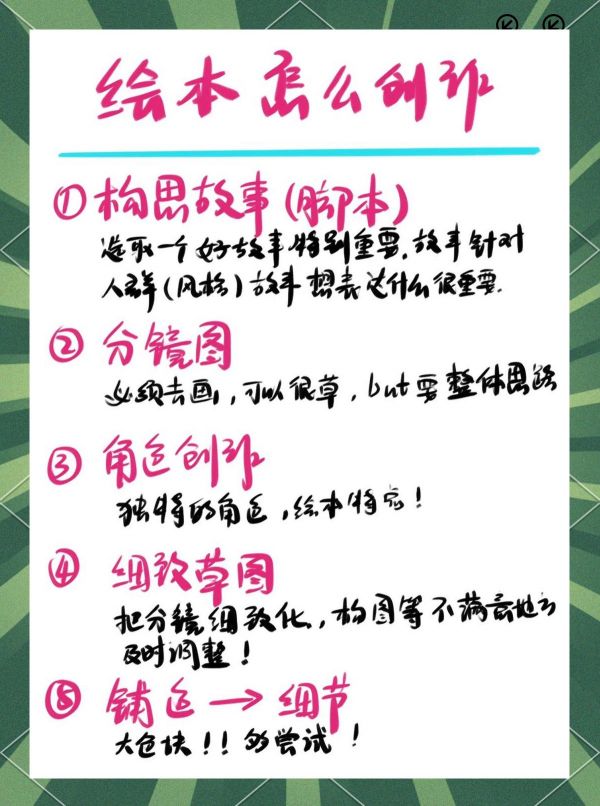 绘本怎么创作
① 构思故事(脚本)
选取一个好故事特别重要,故事针对
人群(风格)故事想表达什么很重要.
② 分镜图
必须去画,可以很草,but要整体思路
③ 角色创作
独特的角色,绘本特点!
④ 细致草图
把分镜细致化,构图等不满意地方
及时调整!
⑤ 铺色→细节
大色块!!多尝试!